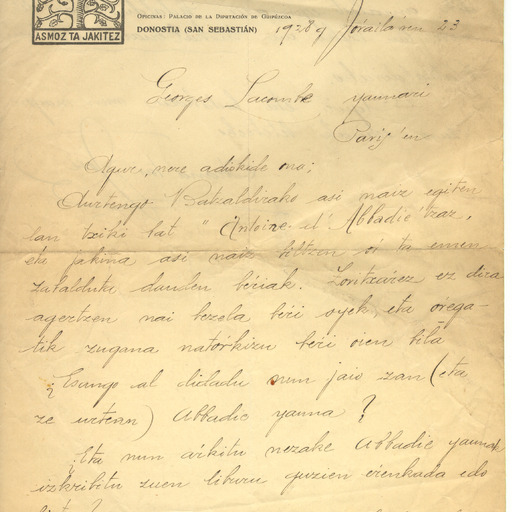 ASMOZ TA JAKITEZ
OFICINAS: PALACIO DE LA DIPUTACIÓN DE GUIPÚZCOA
DONOSTIA (SAN SEBASTIÁN) 1928'g Jorailaren 23
Georges Lacombe yaunari
Paris'en
Agur, nere adiskide on;
Aurtengo Batzaldirako asi naiz egiten
lan txiki bat "Antoine d'Abbadie'tzaz,
eta jakina asi naiz biltzen or ta emen
zabalduta dauden bériak. Loritxárez ez dira
agertzen nai bezela béri oyek, eta orega-
tik zugana natorkizu béri oien bila
¿Esango al didazu nun jaio zan (eta
ze urtean) Abbadie yauna?
¿Eta nun arkitu nezake Abbadie yaunak
izkribitu zuen liburu guzien erenkada edo